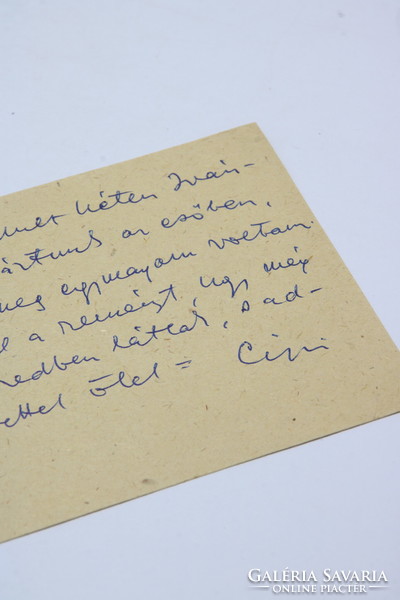 héten Iván-
ártunk az esőben,
meg egymagam voltam
l a reményt, úgy még
edben látlak, s ad-
ettel ölel =
GALÉRIA SAVARIA
ONLINE PIACTÉR